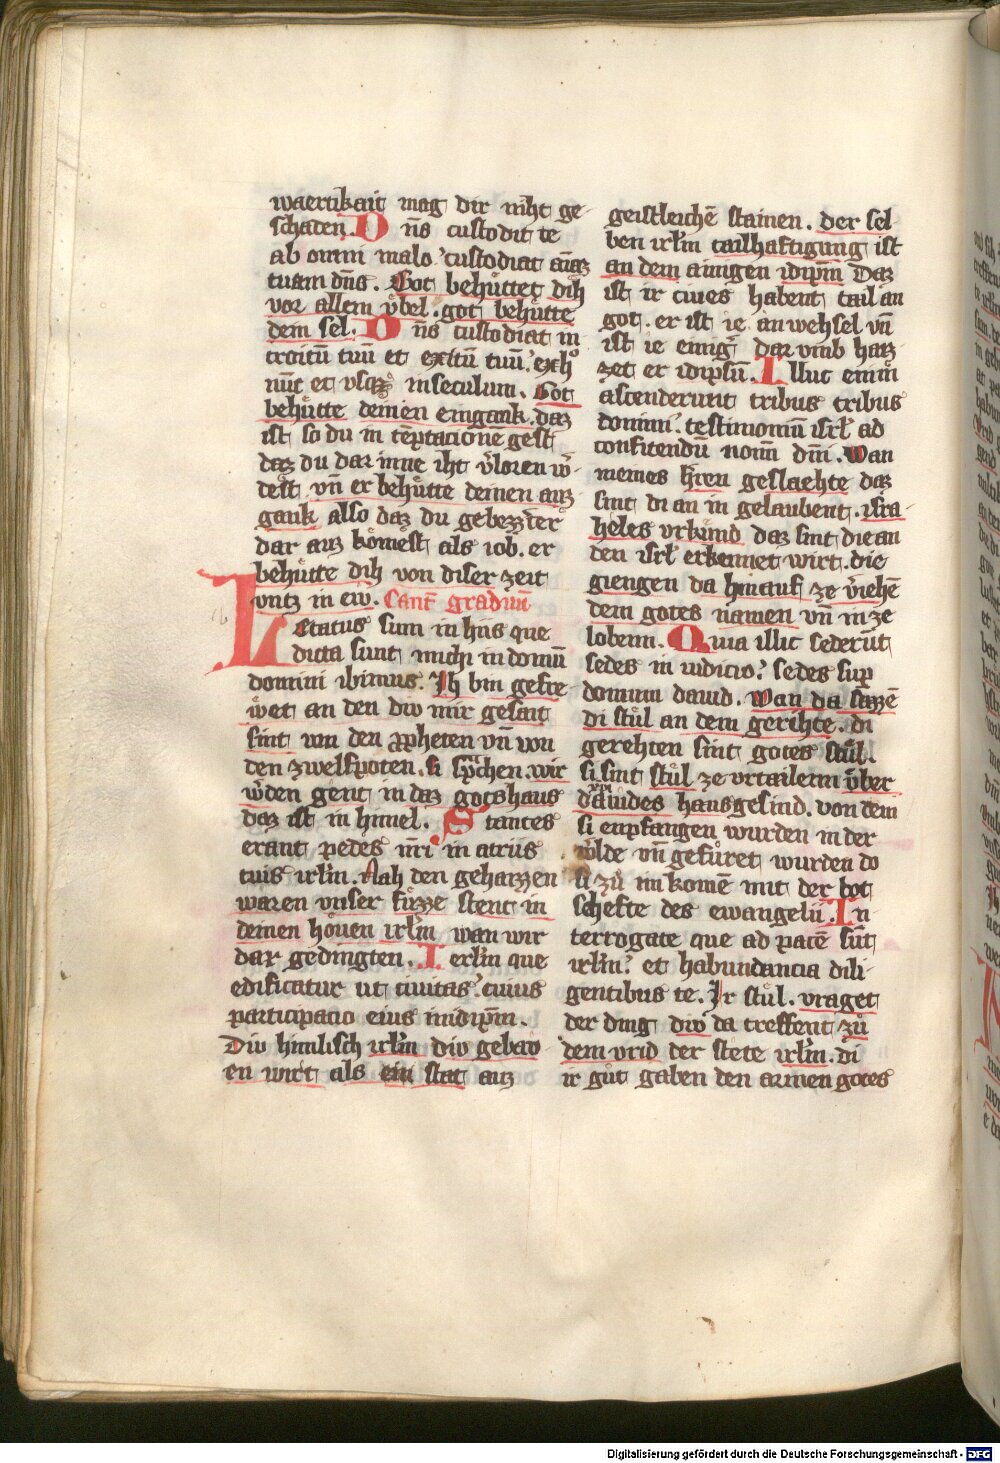 waertikait mag dir niht ge
schaden. D ns custodit te
ab omni malo custodiat aĩaz
tuam dns. Got behuͤttet dih
vor allem vͤbel. got behuͤtte
dem sel. D ns custodiat in
troitũ tuũ et exitũ tuũ. ex hͦ
nũc et vsqz inseculum. Got
behuͤtte deinen eingank. daz
ist so du in tẽptacionẽ gest
daz du dar inne iht v̓loren w̓
dest vñ er behuͤtte deinen auz
gank also daz du gebezzert̓
dar auz koͤmest als iob. er
behuͤtte dih von diser zeit
vntz in ew̃. Cant̃ graduũ
L Etatus sum in hiis que
dicta sunt michi in domũ
domini ibimus. Ih bin gefre
wͤet an den diw mir gesait
sint von den ꝓpheten vñ von
den zwelfpoten. si sprachen. wir
w̓den gent in daz gotshaus
daz ist in himel. S tantes
erant pedes nr̃i in atriis
tuis irl̃m. Nah den geharzzen
waren vnser fuͤzze stent in
deinen hoͤuen irl̃m wan wir
dar gedingten. I erl̃m que
edificatur ut ciuitas. cuius
participatio eius inidip̃m.
Div himlisch irl̃m div gebaw
en wirt als ein stat auz
geistleichẽ stainen. der sel
ben irl̃m tailhaftigung ist
an dem ainigen idip̃m Daz
ist ir ciues habent tail an
got. er ist ie an wehsel vñ
ist ie einig dar vmb haiz
zet er idipsũ. I lluc enim
ascenderunt tribus tribus
domini. testimoniũ isrl̃ ad
confitendũ nomĩ dñi. Wan
meines h̓ren geslaehte daz
sint di an in gelaubent. isra
heles vrkund daz sint die an
den isrl̃ erkennet wirt. die
giengen da hinauf ze v̓iehẽ
dem gotes namen vñ in ze
lobenn. Q uia illic sederũt
sedes in iudicio. sedes sup
domum dauid. Wan da sazzẽ
di stuͤl an dem gerihte. di
gerehten sint gotes stuͤl.
si sint stuͤl ze vrtailenn vͤber
dauides hausgesind. von dem
si enpfangen wurden in der
w̓lde vñ gefuͤret wurden do
si zuͦ im komẽ mit der bot
schefte des ewangelii. I n
terrogate que ad pacẽ sũt
irl̃m. et habundancia dili-
gentibus te. Ir stuͤl. vraget
der ding diw da treffent zuͦ
dem vrid der stete irl̃m. di
ir guͦt gaben den armen gotes
Digitalisierung gefördert durch die Deutsche Forschungsgemeinschaft - DFG